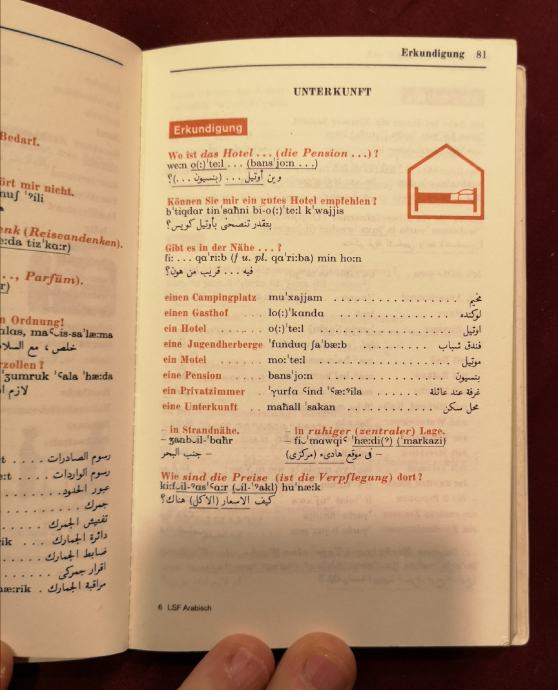 Bedarf.
ört mir nicht.
enk (Reiseandenken).
..., Parfüm).
n Ordnung!
خلص ، مع السلا
erzollen?
ʒumruk ˤala ˈhæ:da
رسوم الصادرات
رسوم الواردات
عبور الحدود
جمرك
تفتيش الجمرك
دائرة الجمارك
ضابط الجمارك
اقرار جمركي
مراقبة الجمارك
Erkundigung 81
UNTERKUNFT
Erkundigung
Wo ist das Hotel ... (die Pension ...)?
we:n o(:)ˈte:l ... (bansˈjo:n ...)
وين أوتيل ... (بنسيون ...)؟
Können Sie mir ein gutes Hotel empfehlen?
bˈtiqdar tinˈsaħni bi-o(:)ˈte:l kˈwajjis
بتقدر تنصحنى بأوتيل كويس؟
Gibt es in der Nähe ...?
fi: ... qaˈri:b (f u. pl. qaˈri:ba) min ho:n
فيه ... قريب من هون؟
einen Campingplatz muˈxajjam مخيم
einen Gasthof lo(:)ˈkanda لوكنده
ein Hotel o(:)ˈte:l اوتيل
eine Jugendherberge ˈfunduq ʃaˈbæ:b فندق شباب
ein Motel mo:ˈte:l موتيل
eine Pension bansˈjo:n بنسيون
ein Privatzimmer ˈɣurfa ˤind ˈˤæ:ˀila غرفة عند عائلة
eine Unterkunft maħall ˈsakan محل سكن
– in Strandnähe. – in ruhiger (zentraler) Lage.
– ʒanb‿il-ˈbaħr – fi‿ˈmawqiˤ ˈhæ:di(ˀ) (ˈmarkazi)
– جنب البحر – فى موقع هادىء (مركزى)
Wie sind die Preise (ist die Verpflegung) dort?
ki:f‿il-ˀasˈˤa:r (‿il-ˈˀakl) huˈnæ:k
كيف الاسعار (الاكل) هناك؟
6 LSF Arabisch